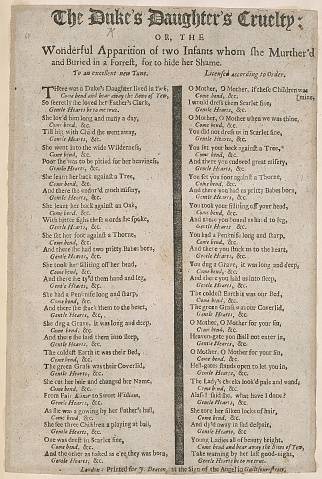 The Duke's Daughter's Cruelty:
OR, THE
Wonderful Apparition of two Infants whom she Murther'd
and Buried in a Forrest, for to hide her Shame.
To an excellent new Tune. Licensed according to Order.
THere was a Duke's Daughter lived in York,
Come bend and bear away the Bows of Yew,
So secretly she loved her Father's Clark,
Gentle Hearts be to me true.
She lov'd him long and many a day,
Come bend, &c.
Till big with Child she went away,
Gentle Hearts, &c.
She went into the wide Wilderness,
Come bend, &c.
Poor she was to be pitied for her heaviness,
Gentle Hearts, &c.
She leant her back against a Tree,
Come bend, &c.
And there she endur'd much misery,
Gentle Hearts, &c.
She leant her back against an Oak,
Come bend, &c.
With bitter sighs these words she spoke,
Gentle Hearts, &c.
She set her foot against a Thorne,
Come bend, &c.
And there she had two pritty Babes born,
Gentle Hearts, &c.
She took her filliting off her head,
Come bend, &c.
And there she ty'd them hand and leg,
Gentle Hearts, &c.
She had a Penknife long and sharp,
Come bend, &c.
And there she stuck them to the heart,
Gentle Hearts, &c.
She dug a Grave, it was long and deep,
Come bend, &c.
And there she laid them in to sleep,
Gentle Hearts, &c.
The coldest Earth it was their Bed,
Come bend, &c.
The green Grass was their Coverlid,
Gentle Hearts, &c.
She cut her hair and changed her Name,
Come bend, &c.
From Fair to Sweet William,
Gentle Hearts, &c.
As she was a going by her Father's hall,
Come bend, &c.
She see three Children a playing at ball,
Gentle Hearts, &c.
One was drest in Scarlet fine,
Come bend, &c.
And the other as naked as e're they was born,
Gentle Hearts, &c.
O Mother, O Mother, if these Children was
[mine,
Come bend, &c.
I would dress them Scarlet fine,
Gentle Hearts, &c.
O Mother, O Mother when we was thine,
Come bend, &c.
You did not dress us in Scarlet fine,
Gentle Hearts, &c.
You set your back against a Tree,
Come bend, &c.
And there you endured great misery,
Gentle Hearts, &c.
You set you foot against a Thorne,
Come bend, &c.
And there you had us pritty Babes born,
Gentle Hearts, &c.
You took your filliting off your head,
Come bend, &c.
And there you bound us hand to leg,
Gentle Hearts, &c.
You had a Penknife long and sharp,
Come bend, &c.
And there you stuck us to the heart,
Gentle Hearts, &c.
You dug a Grave, it was long and deep,
Come bend, &c.
And there you laid us in to sleep,
Gentle Hearts, &c.
The coldest Earth it was our Bed,
Come bend, &c.
The green Grass was our Coverlid,
Gentle Hearts, &c.
O Mother, O Mother for your sin,
Come bend, &c.
Heaven-gate you shall not enter in,
Gentle Hearts, &c.
O Mother, O Mother for your sin,
Come bend, &c.
Hell-gates stands open to let you in,
Gentle Hearts, &c.
The Lady's cheeks look'd pale and wand,
Come bend, &c.
Alass I said she, what have I done?
Gentle Hearts, &c.
She tore her silken locks of hair,
Come bend, &c.
And dy'd away in sad despair,
Gentle Hearts, &c.
Young Ladies all of beauty bright,
Come bend and bear away the Bows of Yew,
Take warning by her last good-night,
Gentle Hearts be to me true.
London: Printed for J. Deacon, at the Sign of the Angel in Guiltspur-street.